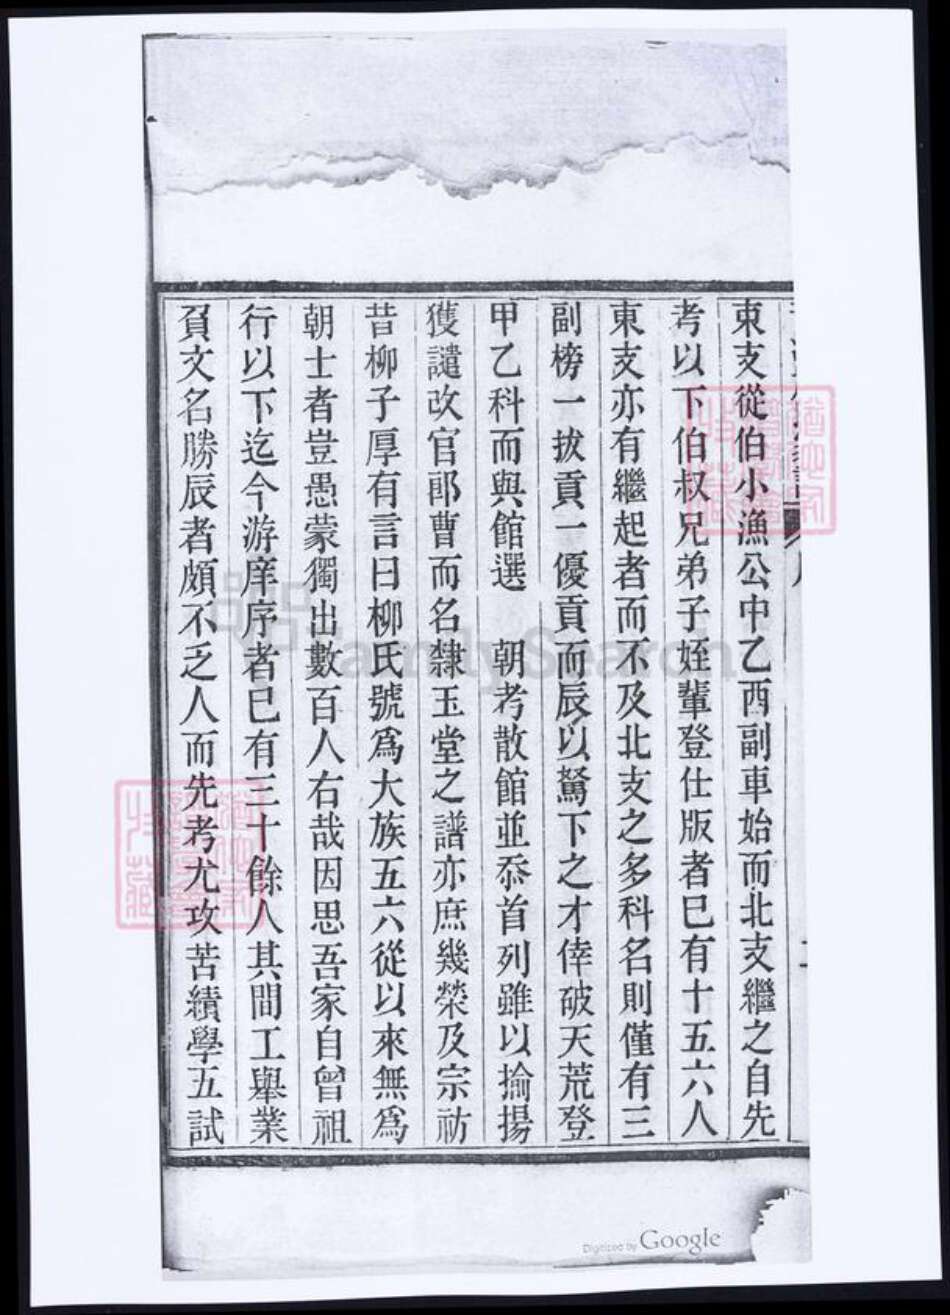 東支從伯小漁公中乙酉副車始而北支繼之自先
考以下伯叔兄弟子姪輩登仕版者已有十五六人
東支亦有繼起者而不及北支之多科名則僅有三
副榜一拔貢一優貢而辰以駑下之才倖破天荒登
甲乙科而與館選　朝考散館並忝首列雖以揄揚
獲譴改官郎曹而名隸玉堂之譜亦庶幾榮及宗祊
昔柳子厚有言曰柳氏號爲大族五六從以來無爲
朝士者豈愚蒙獨出數百人右哉因思吾家自曾祖
行以下迄今游庠序者已有三十餘人其間工舉業
負文名勝辰者頗不乏人而先考尤攻苦績學五試
FamilySearch
Digitized by Google